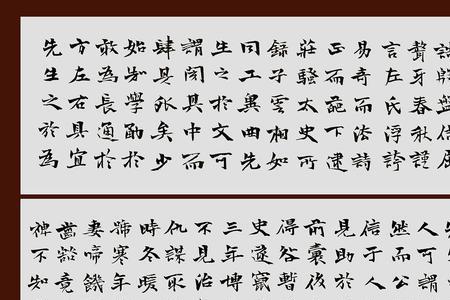 誥殷盤佶屈
聱牙春秋謹
言左氏浮誇
易奇而法詩
正而葩下逮
莊騷太史所
錄子雲相如
同工異曲先
生之於文可
謂閎其中而
肆其外矣少
始知學勇於
敢為長通於
方左右具宜
先生之於為
人可
然而公
信于人
見助於
前後
得咎暫
史遂竄
三年博
不見治
仇謀取
時冬暖
寒年
妻啼饑
齒豁竟
裨不知